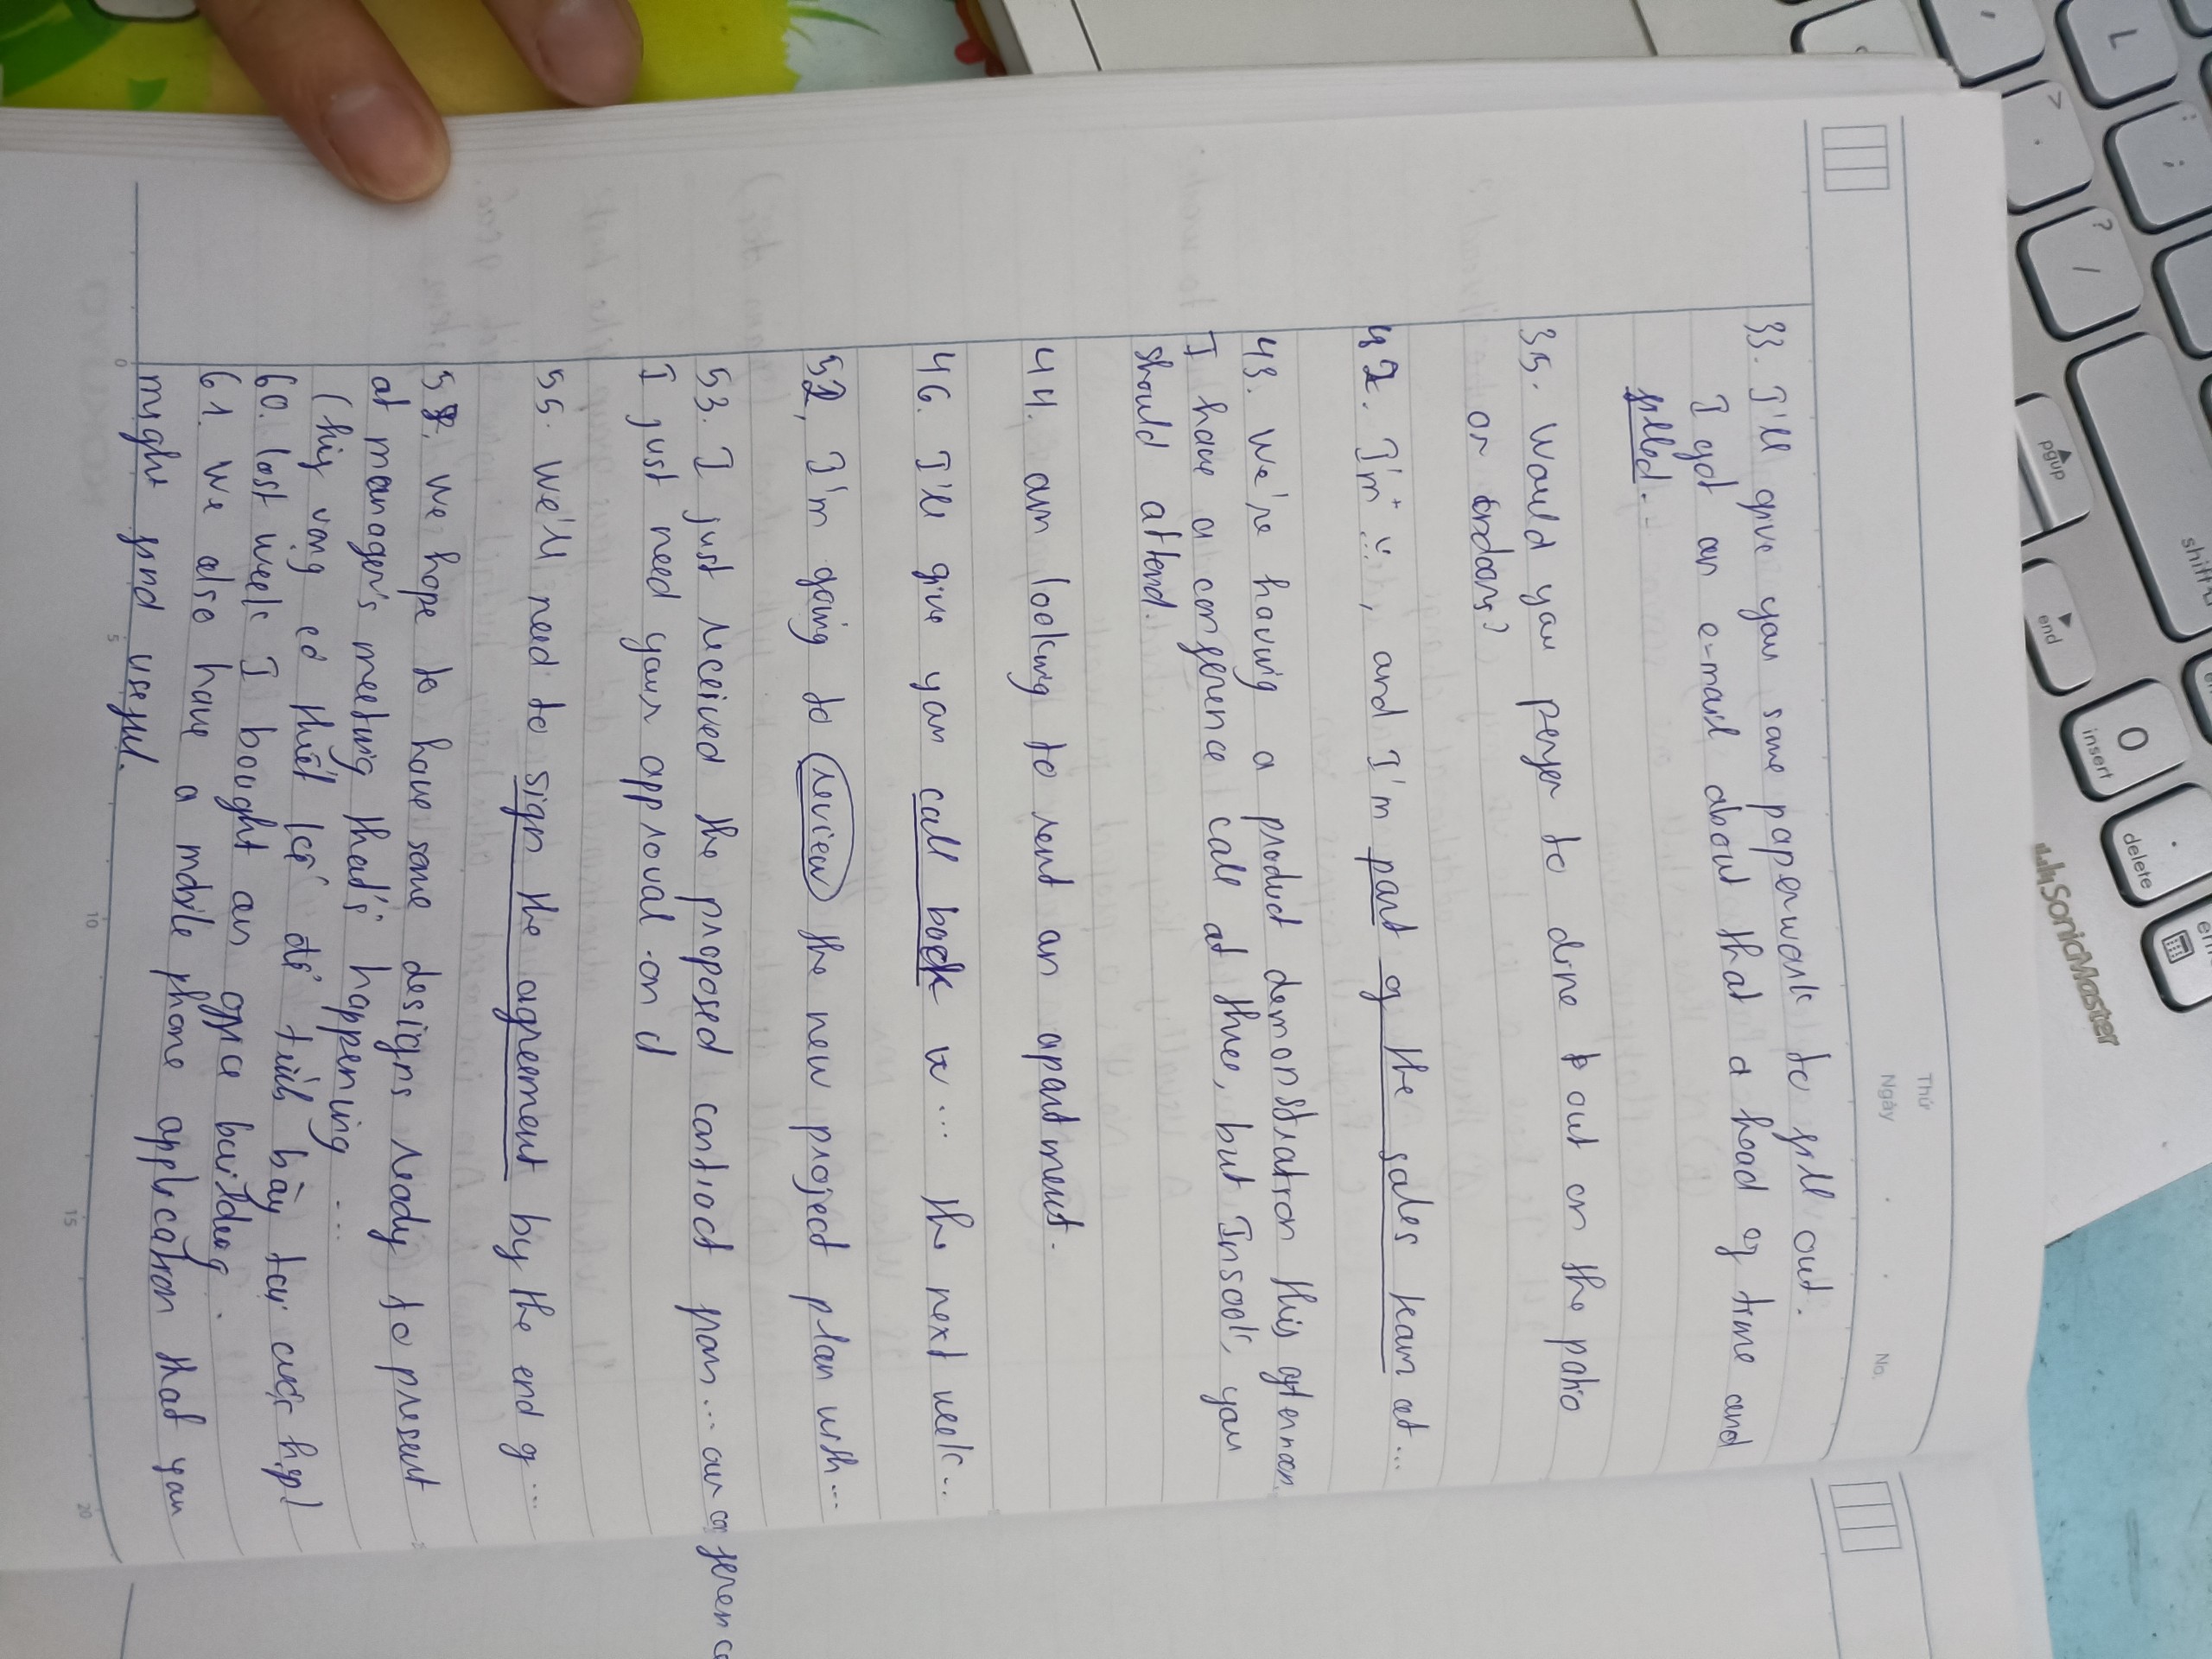 Thứ
Ngày
No.
33. I'll give you some paperwork to fill out.
I got an e-mail about that a head of time and
filled.
35. Would you perfer to dine out on the patio
or indoors?
42. I'm, and I'm part of the sales team at...
43. We're having a product demonstration this afternoon.
I have a conference call at three, but Insook, you
should attend.
44. am looking to rent an apartment.
46. I'll give you call back in... the next week...
52, I'm going to review the new project plan with...
53. I just received the proposed contract from... our conference
I just need your approval on
55. We'll need to sign the agreement by the end of...
58. we hope to have some designs ready to present
at manager's meeting that's happening ...
(hy vọng có thiết kế để trình bày tại cuộc họp)
60. last week I bought an office building.
61. We also have a mobile phone application that you
might find useful.
0 5 10 15 20
L
>
.
:
;
?
/
pgup
shift
end
0
insert
.
delete
SonicMaster